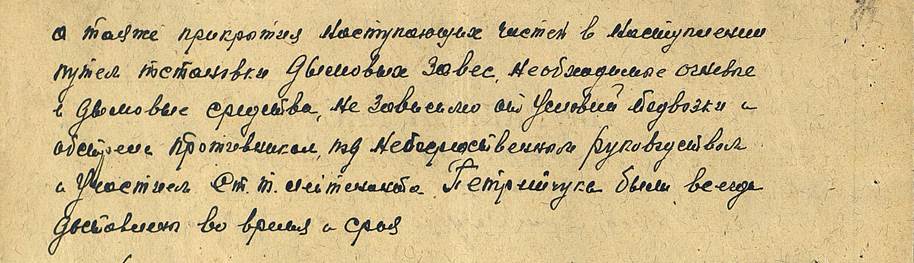 а также прикрытия наступающих частей в наступлении
путем постановки дымовых завес. Необходимые огневые
и дымовые средства, не зависимо от условий подвозки и
обстрела противником, под непосредственном руководством
и участием ст. т. лейтенанта Петрийчука были всегда
доставлены во время и срок